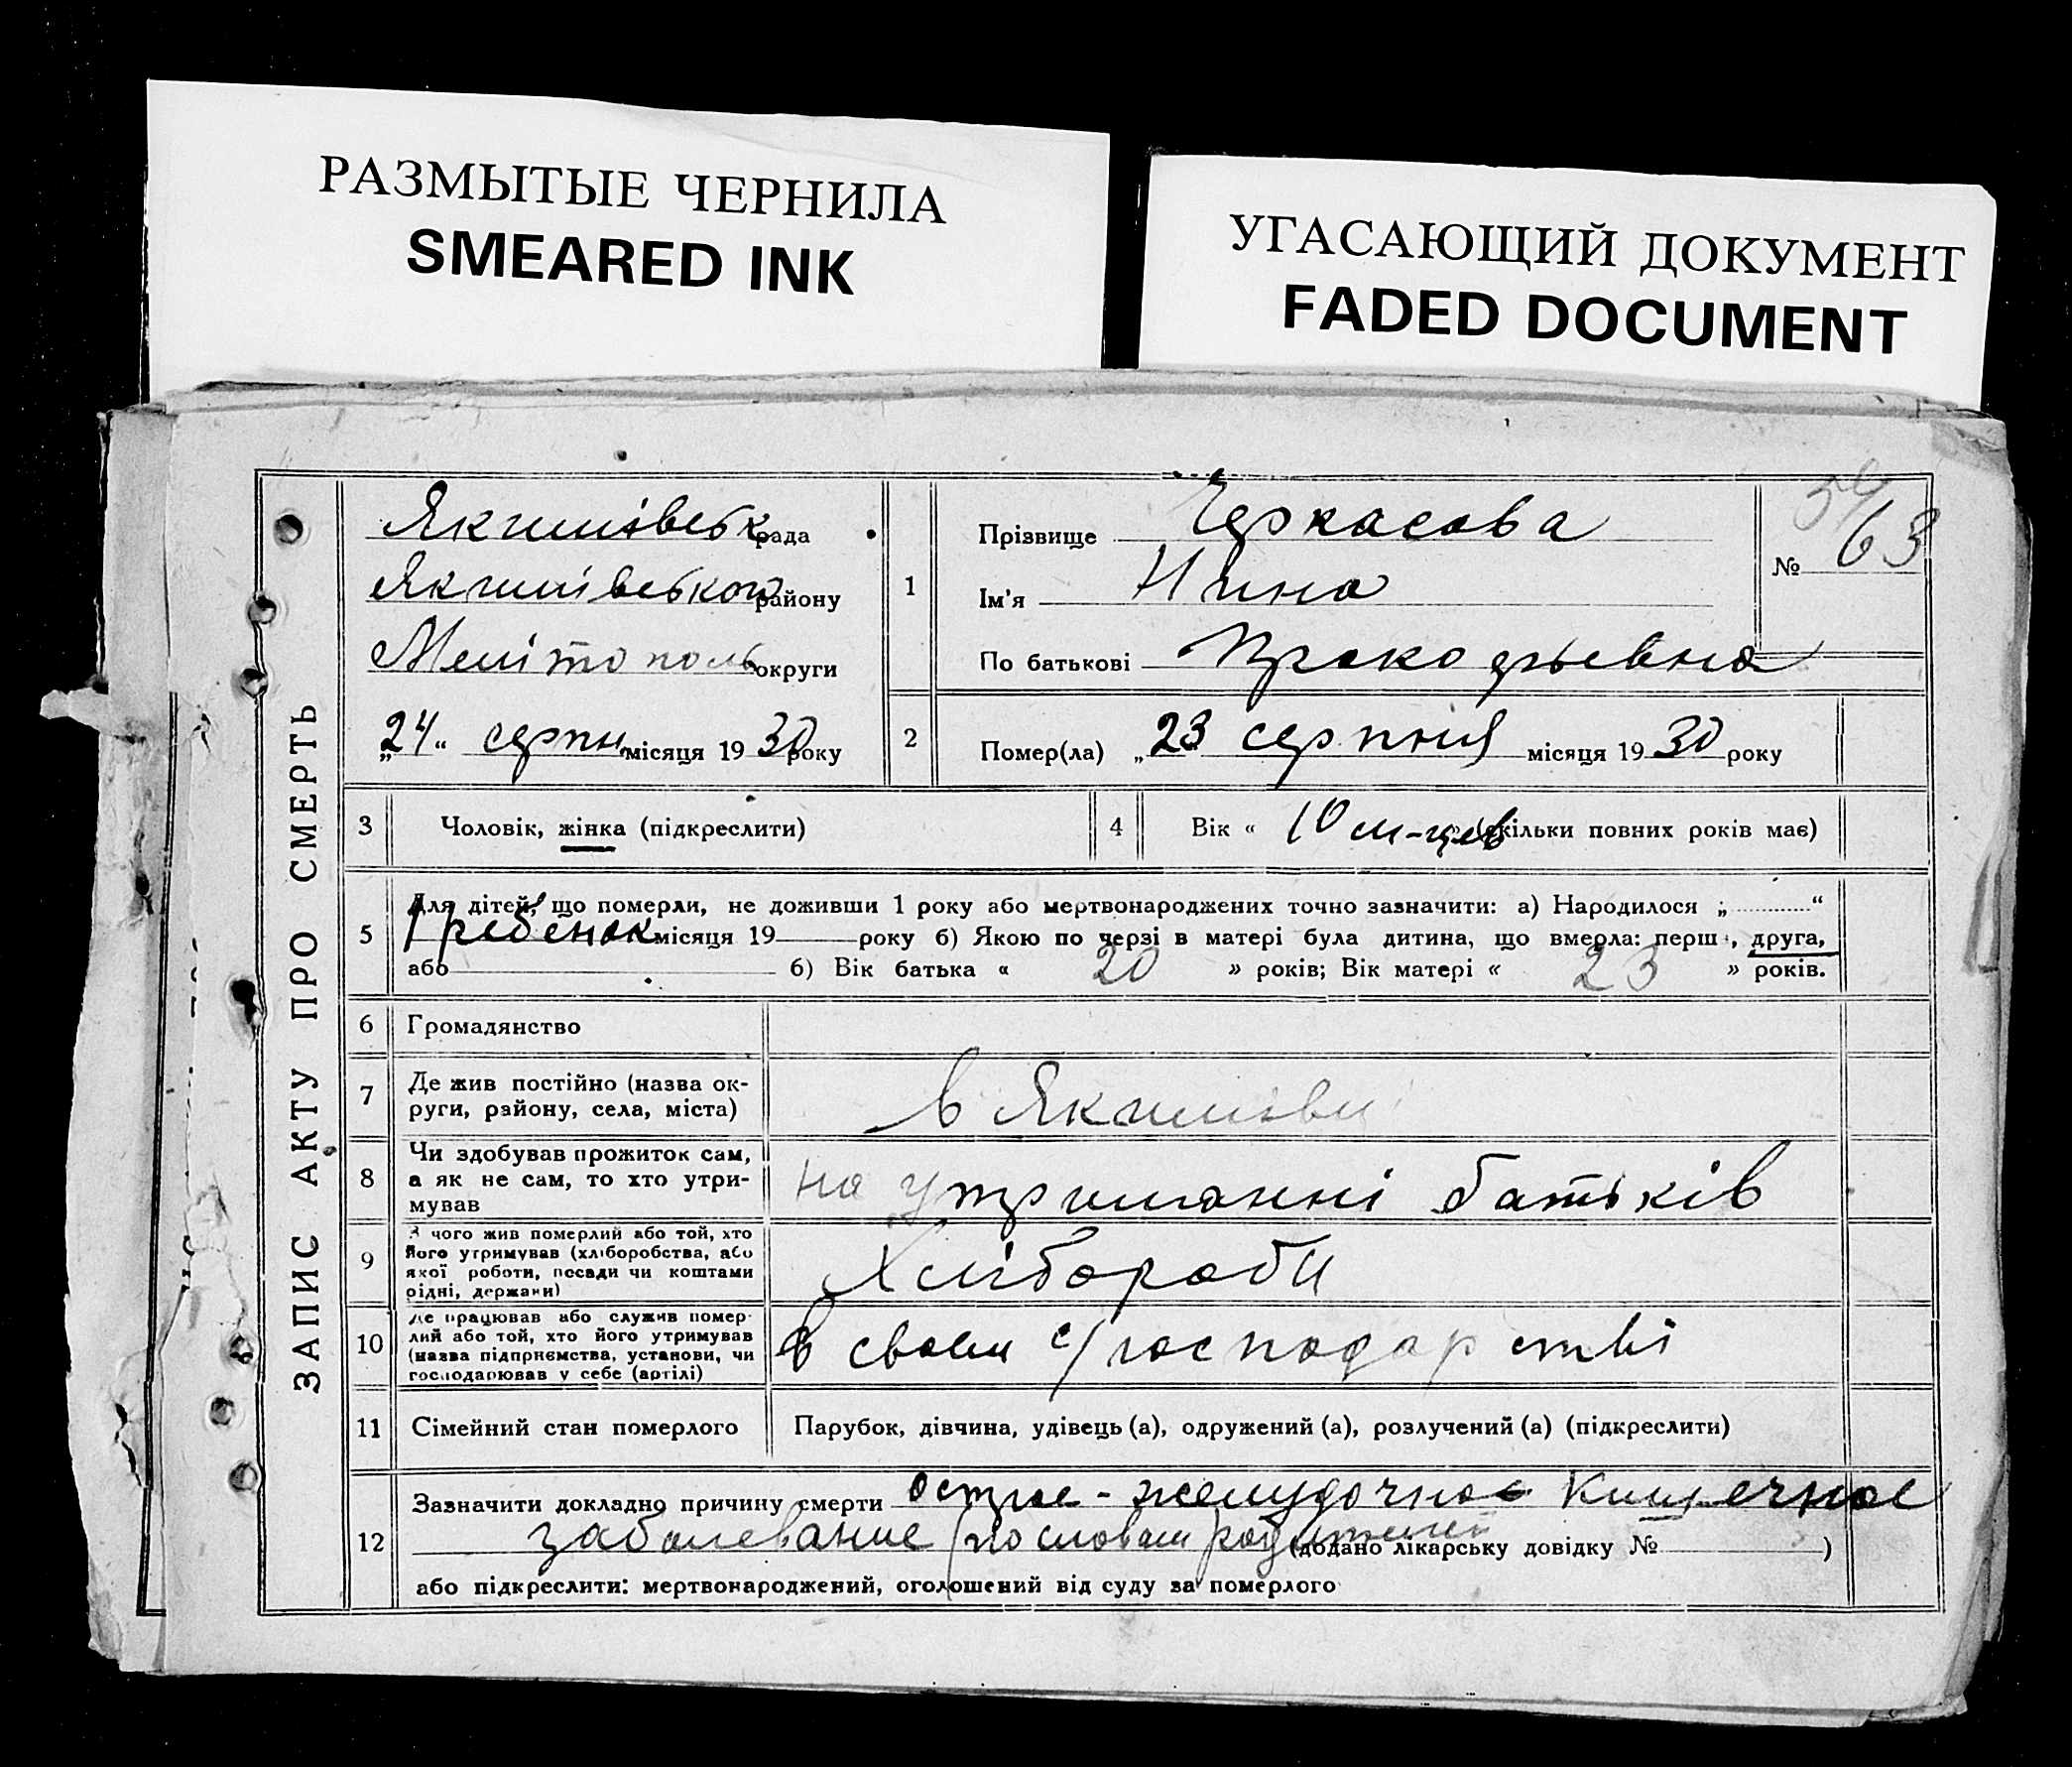 РАЗМЫТЫЕ ЧЕРНИЛА
SMEARED INK
УГАСАЮЩИЙ ДОКУМЕНТ
FADED DOCUMENT
ЗАПИС АКТУ ПРО СМЕРТЬ
Якимівськ рада
Якимівського району
Мелітополь округи
„24“ серпн місяця 1930 року
1
Прізвище Черкасова
Ім'я Нина
По батькові Прокофьевна
№ 63
2
Помер(ла) „23 серпня місяця 1930 року
3
Чоловік, жінка (підкреслити)
4
Вік « 10 м-цев (скільки повних років має)
5
Для дітей, що померли, не доживши 1 року або мертвонароджених точно зазначити: а) Народилося „ “
1 ребенок місяця 19 року б) Якою по черзі в матері була дитина, що вмерла: перш, друга,
або б) Вік батька « 20 » років; Вік матері « 23 » років.
6
Громадянство
7
Де жив постійно (назва ок-
руги, району, села, міста)
в Якимівці
8
Чи здобував прожиток сам,
а як не сам, то хто утри-
мував
на утриманні батьків
9
З чого жив померлий або той, хто
його утримував (хліборобства, або
якої роботи, посади чи коштами
рідні, держави)
Хлібороби
10
Де працював або служив помер-
лий або той, хто його утримував
(назва підприємства, установи, чи
господарював у себе (артілі)
В своем с/господарстві
11
Сімейний стан померлого
Парубок, дівчина, удівець (а), одружений (а), розлучений (а) (підкреслити)
12
Зазначити докладно причину смерти острое-желудочное кишечное
заболевание (по словам родителей (додано лікарську довідку № )
або підкреслити: мертвонароджений, оголошений від суду за померлого